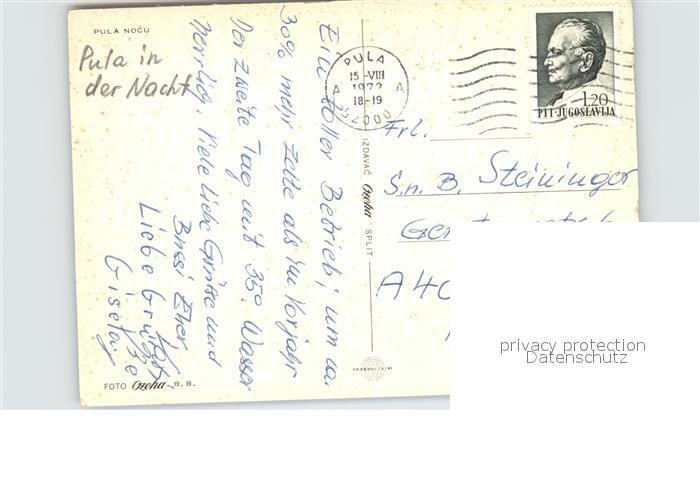 PULA NOĆU
Pula in
der Nacht
Ein toller Betrieb, um ca.
30% mehr Zelte als im Vorjahr
Der zweite Tag mit 35°. Wasser
herrlich. Viele liebe Grüße und
Bussi Eher
Liebe Grüße
Gisela
FOTO Ozeha B. B.
IZDAVAČ Ozeha SPLIT
PULA
15-VIII
1972
18-19
A A
52000
1,20
PTT-JUGOSLAVIJA
Frl.
S.n. B. Steininger
A40
privacy protection
Datenschutz